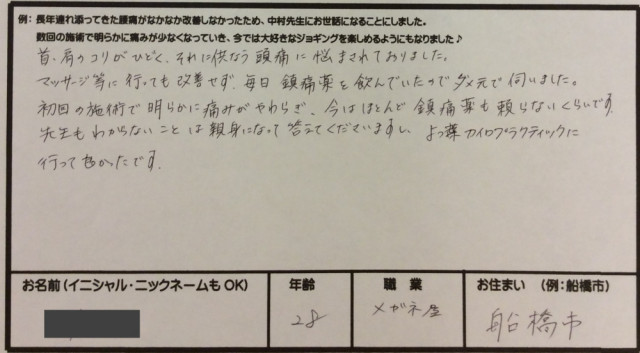 例：長年連れ添ってきた腰痛がなかなか改善しなかったため、中村先生にお世話になることにしました。
数回の施術で明らかに痛みが少なくなっていき、今では大好きなジョギングを楽しめるようにもなりました♪
首・肩のコリがひどく、それに供なう頭痛に悩まされておりました。
マッサージ等に行っても改善せず、毎日鎮痛薬を飲んでいたのでダメ元で伺いました。
初回の施術で明らかに痛みがやわらぎ、今はほとんど鎮痛薬も頼らないくらいです。
先生もわからないことは親身になって答えてくださいますし、よつ葉カイロプラクティックに
行って良かったです。
お名前（イニシャル・ニックネームもOK）
年齢
職業
お住まい （例：船橋市）
28
メガネ屋
船橋市